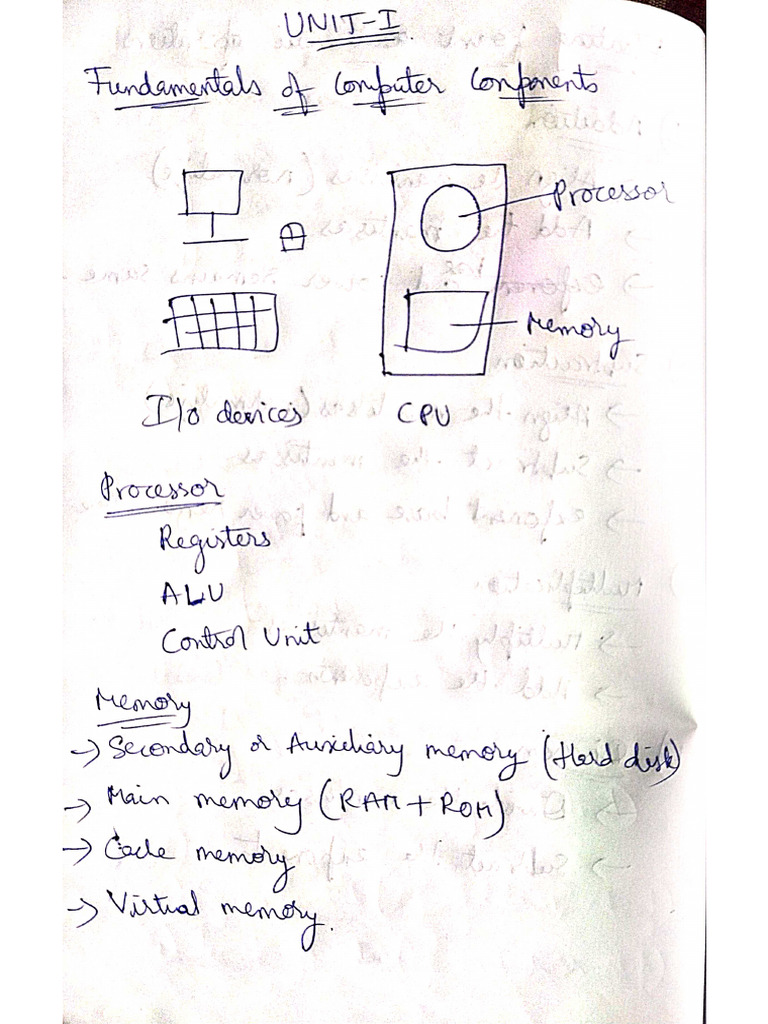 UNIT-I
Fundamentals of Computer Components
Processor
Memory
I/o devices
CPU
Processor
Registers
ALU
Control Unit
Memory
→ Secondary or Auxiliary memory (Hard disk)
→ Main memory (RAM + ROM)
→ Cache memory
→ Virtual memory.